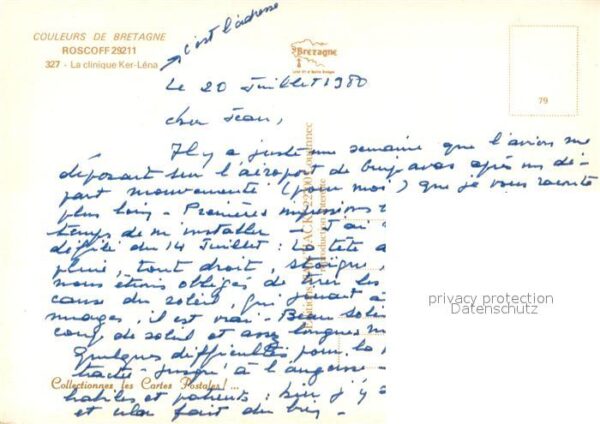 COULEURS DE BRETAGNE
ROSCOFF 29211
327 - La clinique Ker-Léna
c'est l'adresse
Bretagne
79
Le 20 Juillet 1980
cher Jean,
Il y a juste une semaine que l'avion me
déposait sur l'aéroport de après un dé-
part mouvementé (pour moi) que je vous raconte
plus loin - Premières impressions
temps de m'installer - J'ai
défilé du 14 Juillet : La tête
pluie, tout droit, stoïque,
nous étions obligés de tirer les
cause du soleil, qui jouait a
nuages, il est vrai - Beau soleil
coup de soleil et assez longues m
Quelques difficultés pour la
jusqu'à l'angoisse
habiles et patients : bien, j'y a
et cela fait du
Collectionnez les Cartes Postales !...
privacy protection
Datenschutz